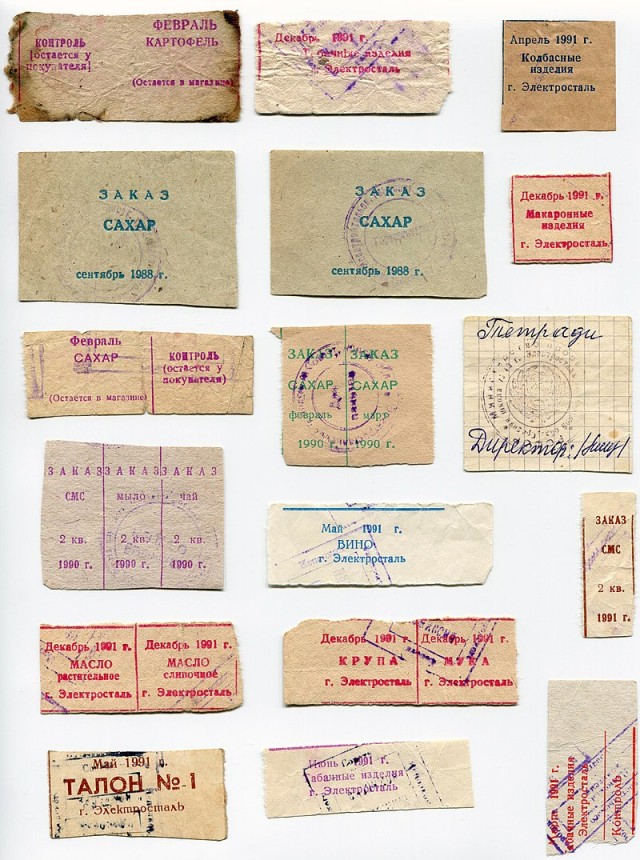 ФЕВРАЛЬ
КАРТОФЕЛЬ
КОНТРОЛЬ
[остается у
покупателя]
(Остается в магазине)
Декабрь 1991 г.
Табачные изделия
г. Электросталь
Апрель 1991 г.
Колбасные
изделия
г. Электросталь
ЗАКАЗ
САХАР
сентябрь 1988 г.
ЗАКАЗ
САХАР
сентябрь 1988 г.
Декабрь 1991 г.
Макаронные
изделия
г. Электросталь
Февраль
САХАР
(Остается в магазине)
КОНТРОЛЬ
(остается у
покупателя)
ЗАКАЗ
САХАР
февраль
1990 г.
ЗАКАЗ
САХАР
март
1990 г.
Тетради
Директор:
ЗАКАЗ
СМС
2 кв.
1990 г.
ЗАКАЗ
мыло
2 кв.
1990 г.
ЗАКАЗ
чай
2 кв.
1990 г.
Май 1991 г.
ВИНО
г. Электросталь
ЗАКАЗ
СМС
2 кв.
1991 г.
Декабрь 1991 г.
МАСЛО
растительное
г. Электросталь
Декабрь 1991 г.
МАСЛО
сливочное
г. Электросталь
Декабрь 1991 г.
КРУПА
г. Электросталь
Декабрь 1991 г.
МУКА
г. Электросталь
Май 1991 г.
ТАЛОН № 1
г. Электросталь
Июнь 1991 г.
Табачные изделия
г. Электросталь
1991 г.
изделия
Электросталь
Контроль